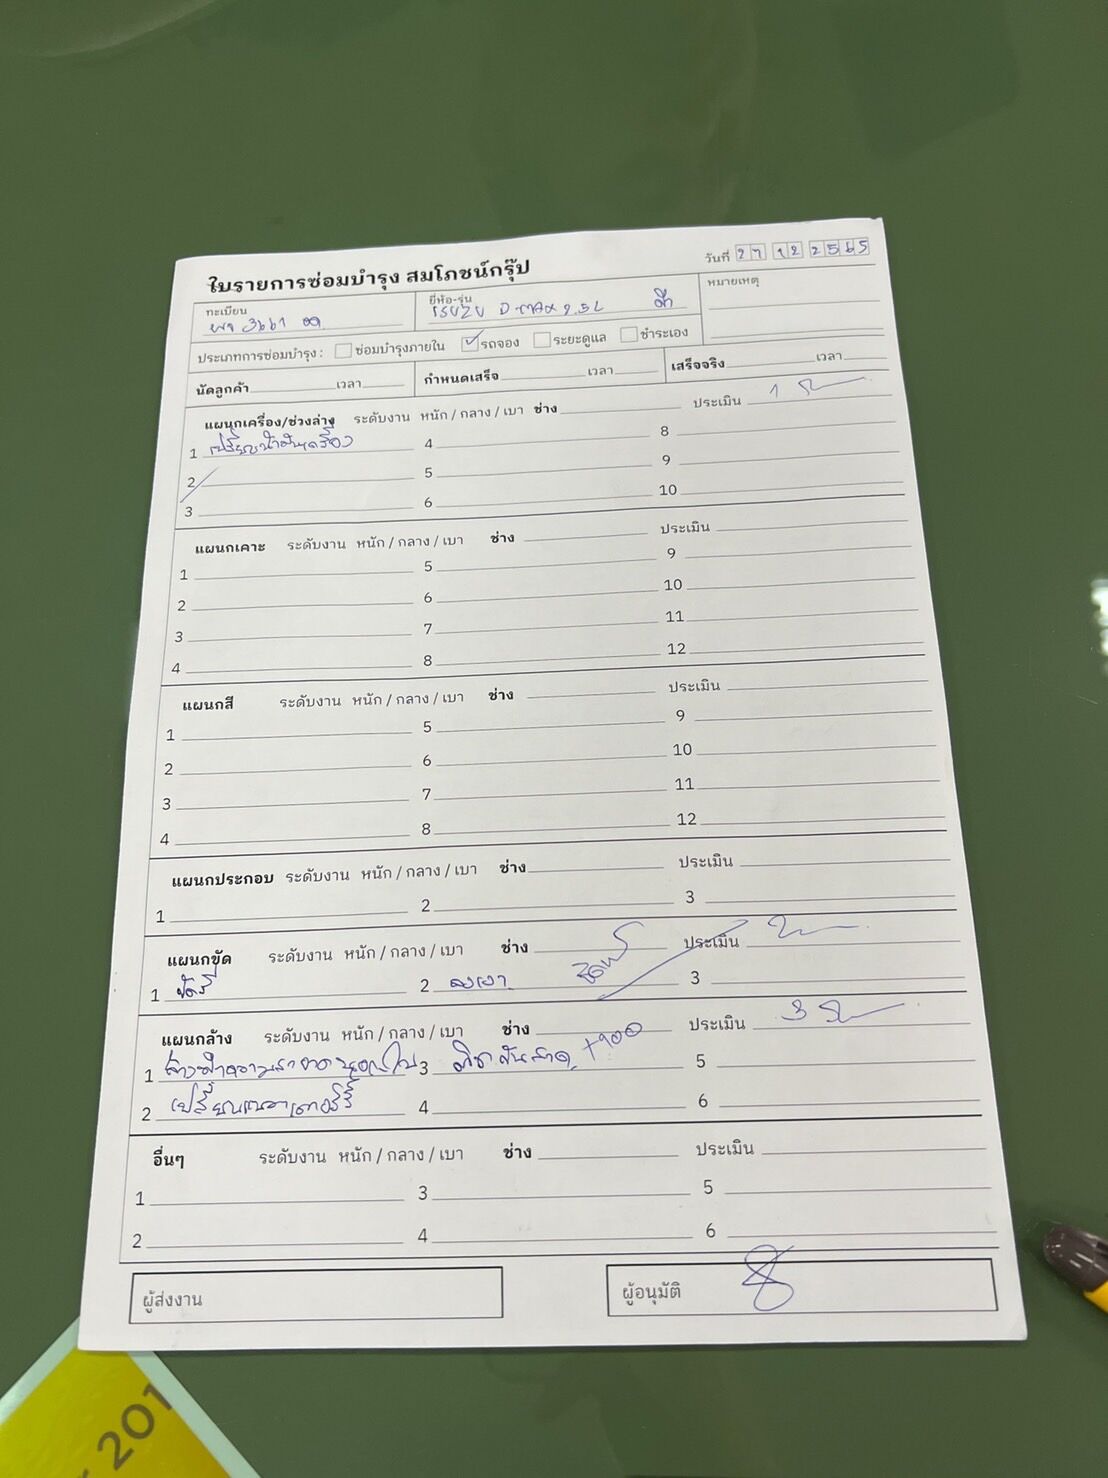 ใบรายการซ่อมบำรุง สมโภชน์กรุ๊ป
วันที่ 27 12 2565
ทะเบียน
ยี่ห้อ-รุ่น
หมายเหตุ
3661
ISUZU D-MAX 2.5L
ประเภทการซ่อมบำรุง : ซ่อมบำรุงภายใน รถจอง ระยะดูแล ชำระเอง
นัดลูกค้า เวลา กำหนดเสร็จ เวลา เสร็จจริง เวลา
แผนกเครื่อง/ช่วงล่าง ระดับงาน หนัก / กลาง / เบา ช่าง ประเมิน 1
1 เปลี่ยนน้ำมันเครื่อง 4 8
2 5 9
3 6 10
แผนกเคาะ ระดับงาน หนัก / กลาง / เบา ช่าง ประเมิน
1 5 9
2 6 10
3 7 11
4 8 12
แผนกสี ระดับงาน หนัก / กลาง / เบา ช่าง ประเมิน
1 5 9
2 6 10
3 7 11
4 8 12
แผนกประกอบ ระดับงาน หนัก / กลาง / เบา ช่าง ประเมิน
1 2 3
แผนกขัด ระดับงาน หนัก / กลาง / เบา ช่าง ประเมิน
1 ขัดสี 2 ลงเงา 3
แผนกล้าง ระดับงาน หนัก / กลาง / เบา ช่าง ประเมิน 3
1 3 +900 5
2 เปลี่ยนแบตเตอร์รี่ 4 6
อื่นๆ ระดับงาน หนัก / กลาง / เบา ช่าง ประเมิน
1 3 5
2 4 6
ผู้ส่งงาน
ผู้อนุมัติ
201